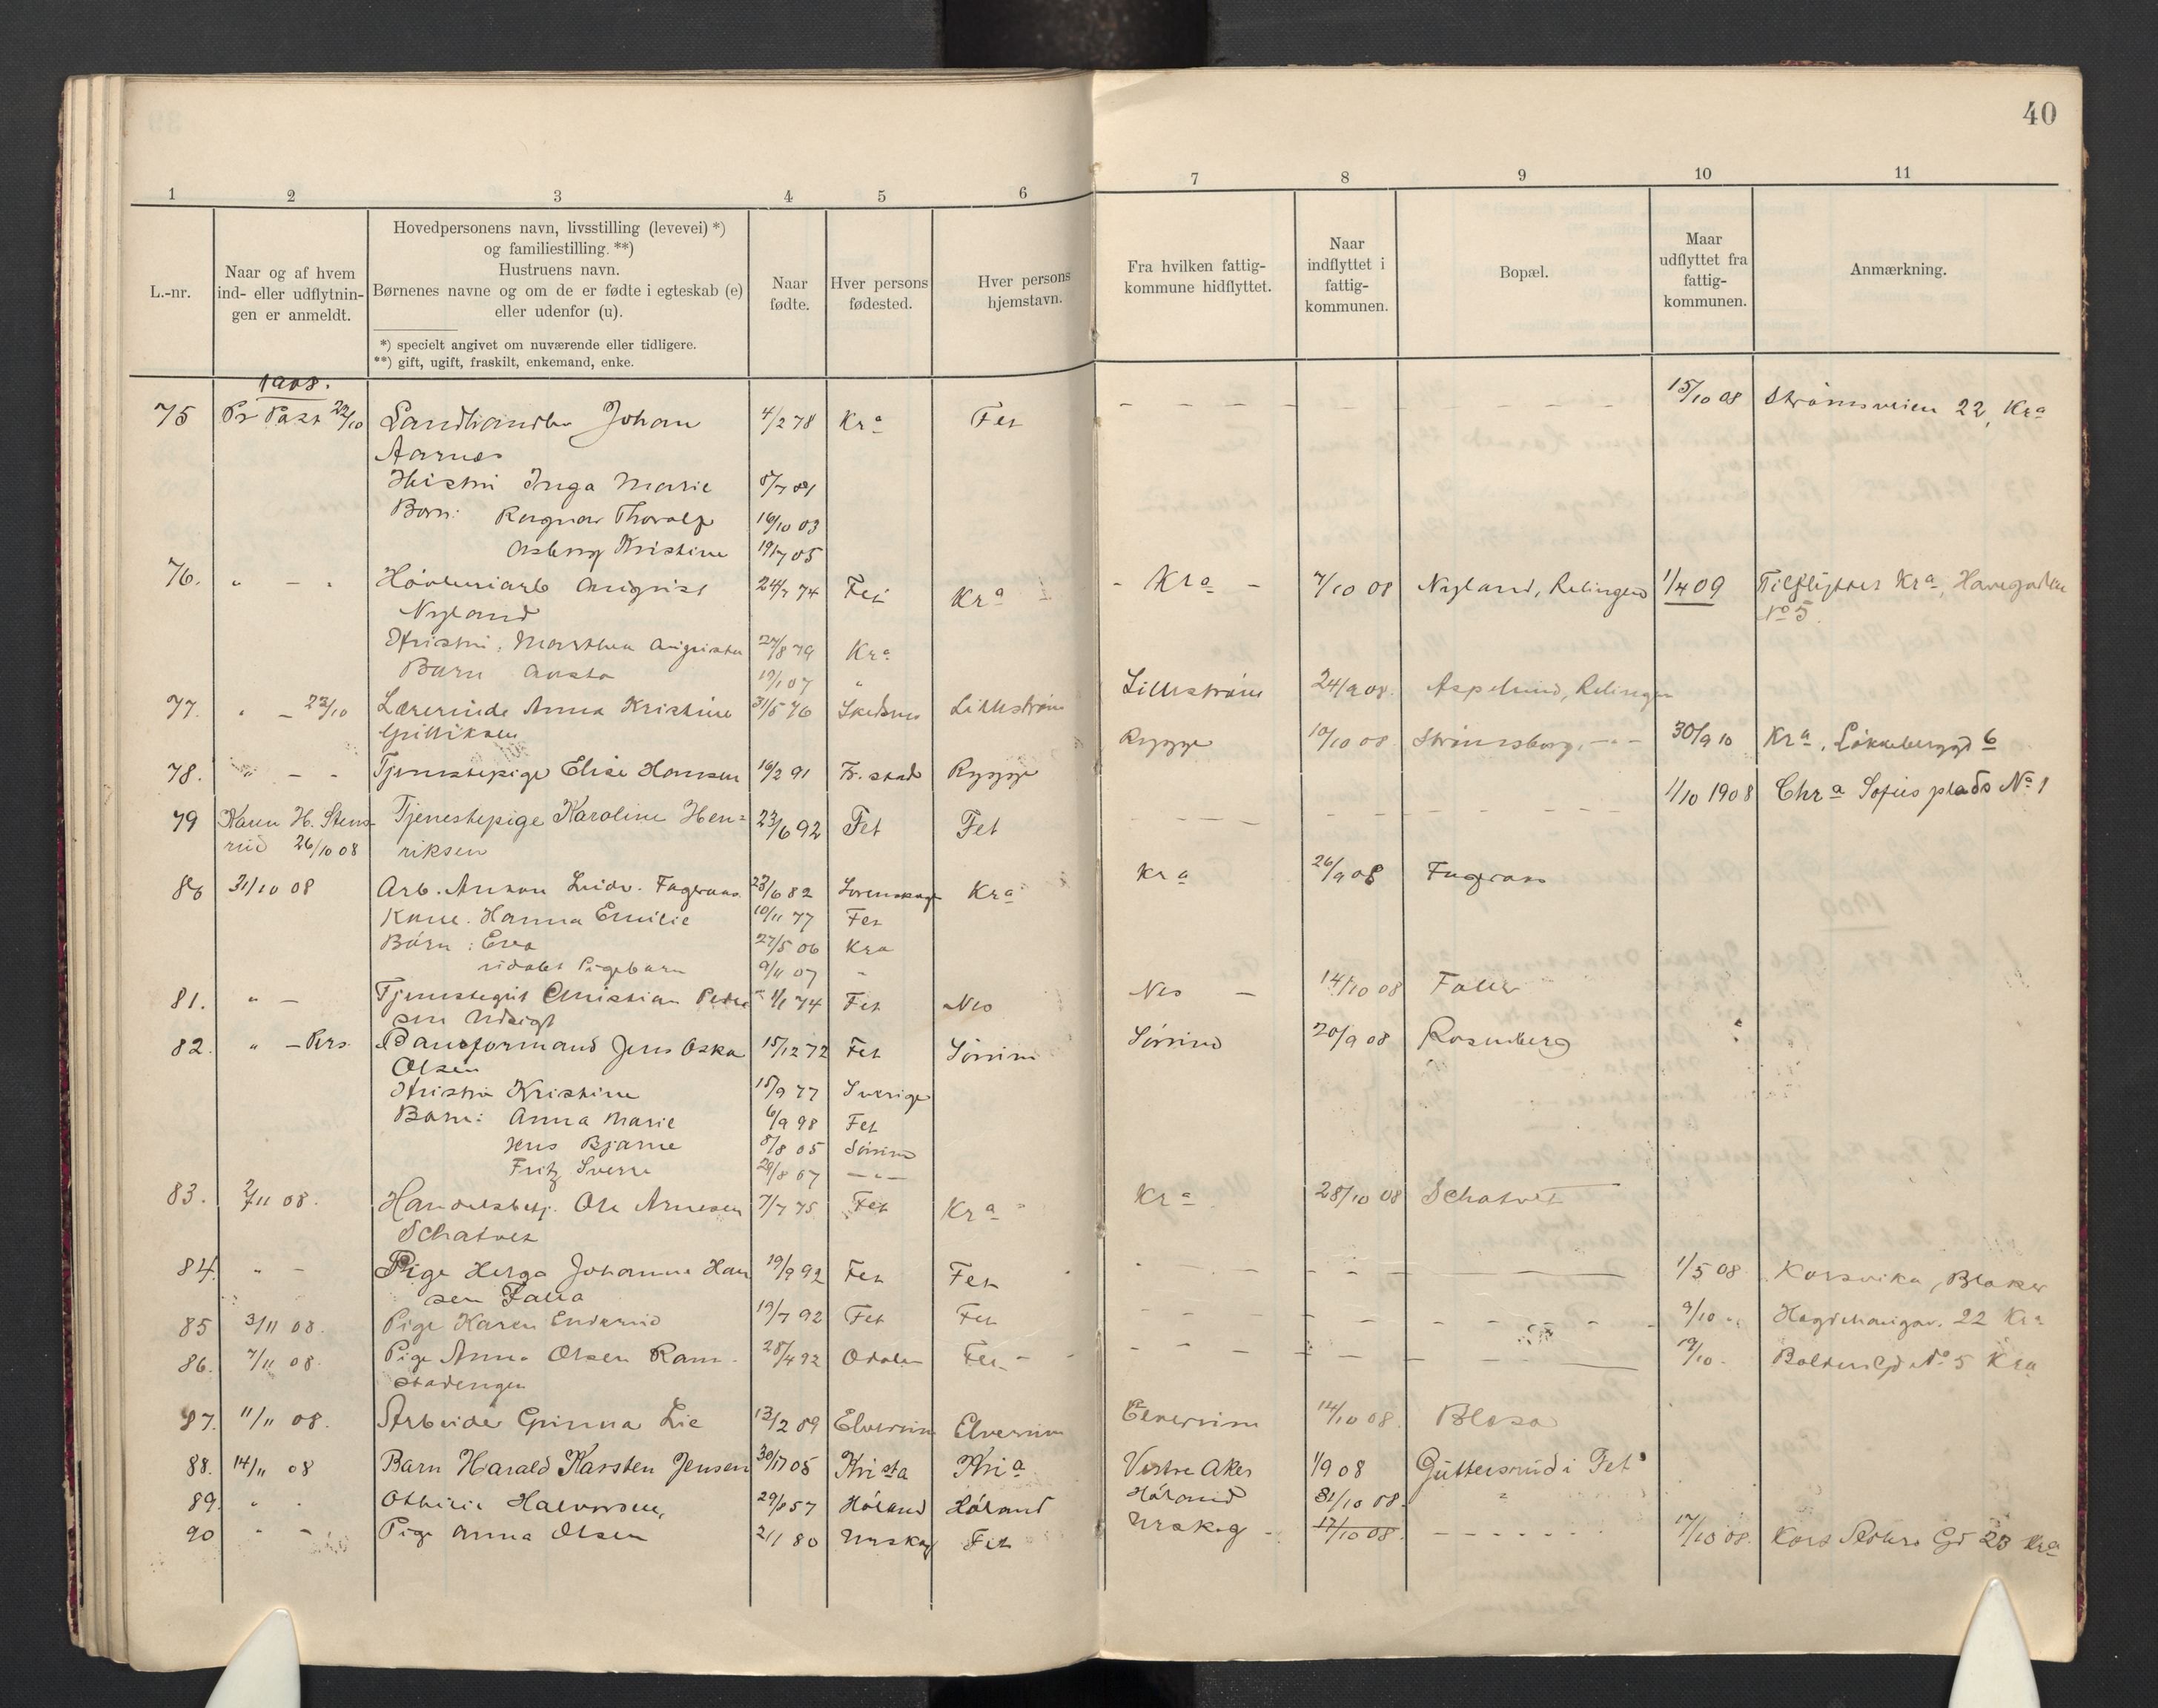 40
1 2 3 4 5 6 7 8 9 10 11
L.-nr.
Naar og af hvem
ind- eller udflytnin-
gen er anmeldt.
Hovedpersonens navn, livsstilling (levevei) *)
og familiestilling. **)
Hustruens navn.
Børnenes navne og om de er fødte i egteskab (e)
eller udenfor (u).
*) specielt angivet om nuværende eller tidligere.
**) gift, ugift, fraskilt, enkemand, enke.
Naar
fødte.
Hver persons
fødested.
Hver persons
hjemstavn.
Fra hvilken fattig-
kommune hidflyttet.
Naar
indflyttet i
fattig-
kommunen.
Bopæl.
Maar
udflyttet fra
fattig-
kommunen.
Anmærkning.
1908.
75 Pr Post 22/10 Landhandler Johan 4/2 78 Kra Fet - - - - 15/10 08 Strømsveien 22, Kra
Aarnes
Hustru Inga Marie 8/7 81
Barn: Ragnar Thoralf 16/10 03
Asborg Kristine 19/7 05
76. " - " Høvleriarb August 24/7 74 Fet Kra - Kra - 7/10 08 Nyland, Relingen 1/4 09 Tilflyttet Kra, Havegaden
Nyland No 5
Hustru: Marthea Augusta 27/8 79 Kra
Barn Aasta 19/1 07 "
77. " - 22/10 Lærerinde Anna Kristine 31/5 76 Skedsmo Lillestrøm Lillestrøm 24/9 08. Aspelund, Relingen
Gulliksen
78. " - - Tjenestepige Elise Hansen 16/2 91 Fr. stad Rygge Rygge 10/10 08 Strømsborg, - " - 30/9 10 Kra, Løkkeberggd 6
79 Karen H. Stens- Tjenestepige Karoline Hen= 23/6 92 Fet Fet - - - - 1/10 1908 Chra Sofies plads No 1
rud 26/10 08 riksen
80 31/10 08 Arb. Anton Ludv. Fageraas 23/6 82 Lørenskog Kra Kra 26/9 08 Fageraas
Kone. Hanna Emilie 10/11 77 Fet
Børn: Eva 27/5 06 Kra
udøbt Pigebarn 9/11 07 "
81. " - Tjenestegut Christian Peder 1/1 74 Fet Nes Nes - 14/10 08 Faller
sen Udsigt
82. " - Pers. Baneformand Jens Oskar 15/12 72 Fet Sørum Sørum 20/9 08 Rosenberg "
Olsen
Hustru Kristine 15/9 77 Sverige
Barn: Anna Marie 6/9 98 Fet
Jens Bjarne 8/8 05 Sørum
Fritz Sverre 29/8 07 - " -
83. 2/11 08. Handelsbetj. Ole Arnesen 7/7 75 Fet Kra Kra 28/10 08 Schatvet
Schatvet
84. " - Pige Helga Johanne Han 19/9 92 Fet Fet - - - - 1/5 08. Korsvika, Blaker
sen Falla
85 3/11 08. Pige Karen Enderud 19/7 92 Fet Fet - - - - 9/10 " 22 Kra
86. 7/11 08. Pige Anna Olsen Ram- 28/4 92 Odalen Fet - - - - 19/10 - No 5 Kra
stadengen
87. 11/11 08. Arbeider Gunna Lie 13/2 89 Elverum Elverum Elverum 14/10 08. Blesa
88. 14/11 08 Barn Harald Karsten Jensen 30/11 05 Kristia Kria Vestre Aker 1/9 08 Guttersrud i Fet
89. " . Othilie Halvorsen, 29/6 57 Høland Høland Høland 31/10 08. "
90 " - Pige Anna Olsen 2/1 80 Urskog Fet Urskog - 17/10 08. - - - - 17/10 08. 23 Kra